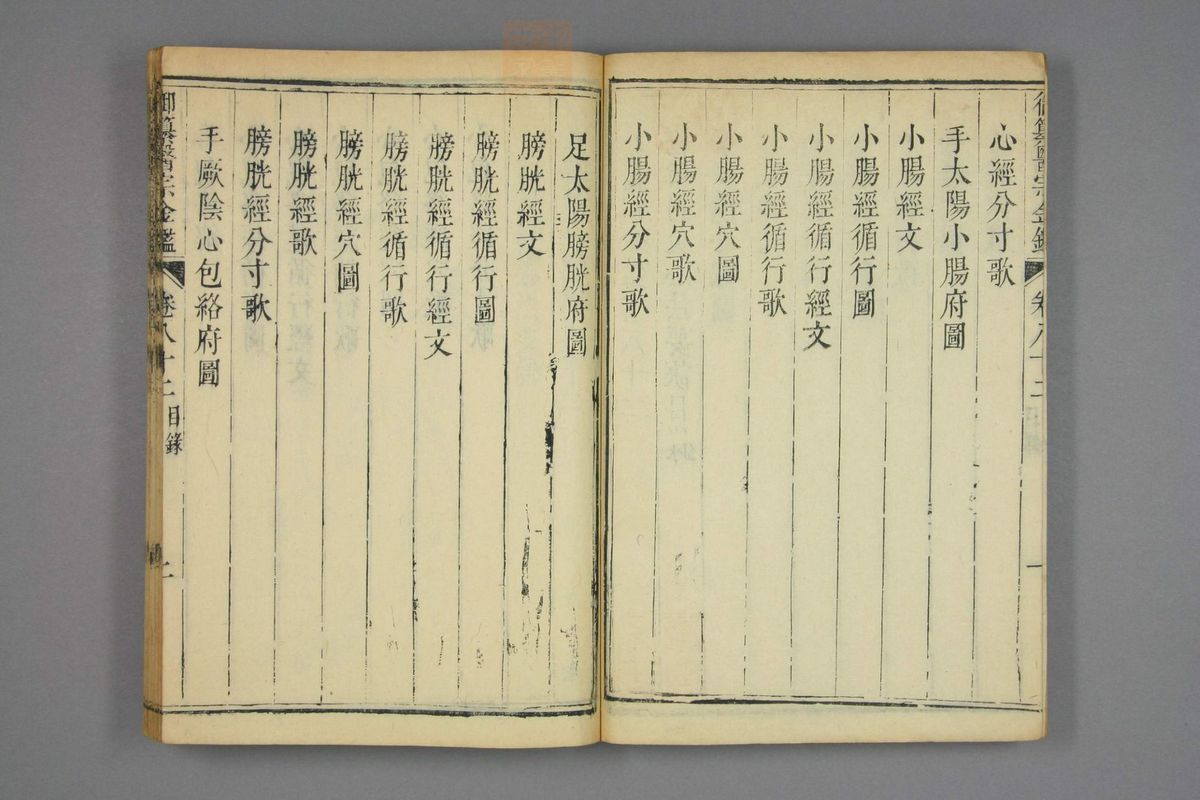 心經分寸歌
手太陽小腸府圖
小腸經文
小腸經循行圖
小腸經循行經文
小腸經循行歌
小腸經穴圖
小腸經穴歌
小腸經分寸歌
足太陽膀胱府圖
膀胱經文
膀胱經循行圖
膀胱經循行經文
膀胱經循行歌
膀胱經穴圖
膀胱經歌
膀胱經分寸歌
手厥陰心包絡府圖
御纂醫宗金鑑
卷八十二
目錄